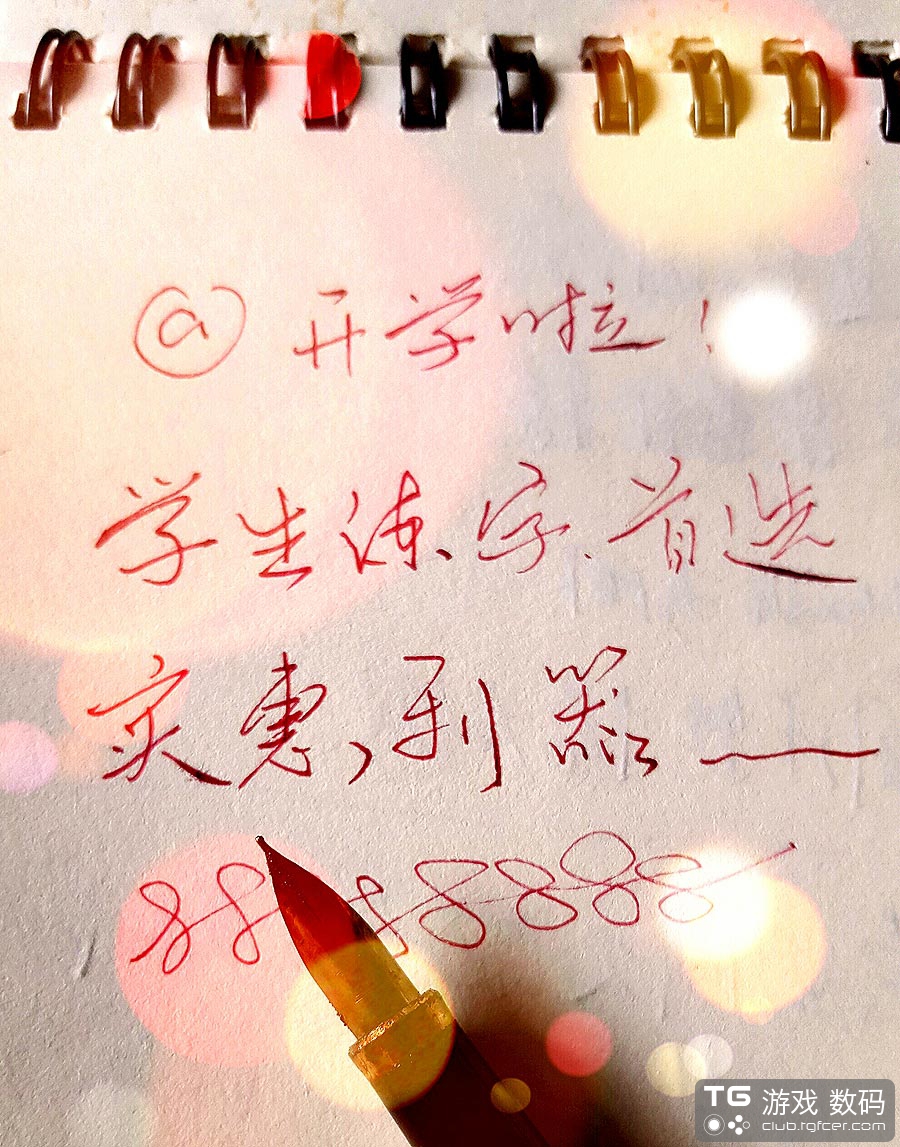 ⓐ 开学啦！
学生练字、首选
实惠，利器——
TG 游戏 数码
club.rgfcer.com